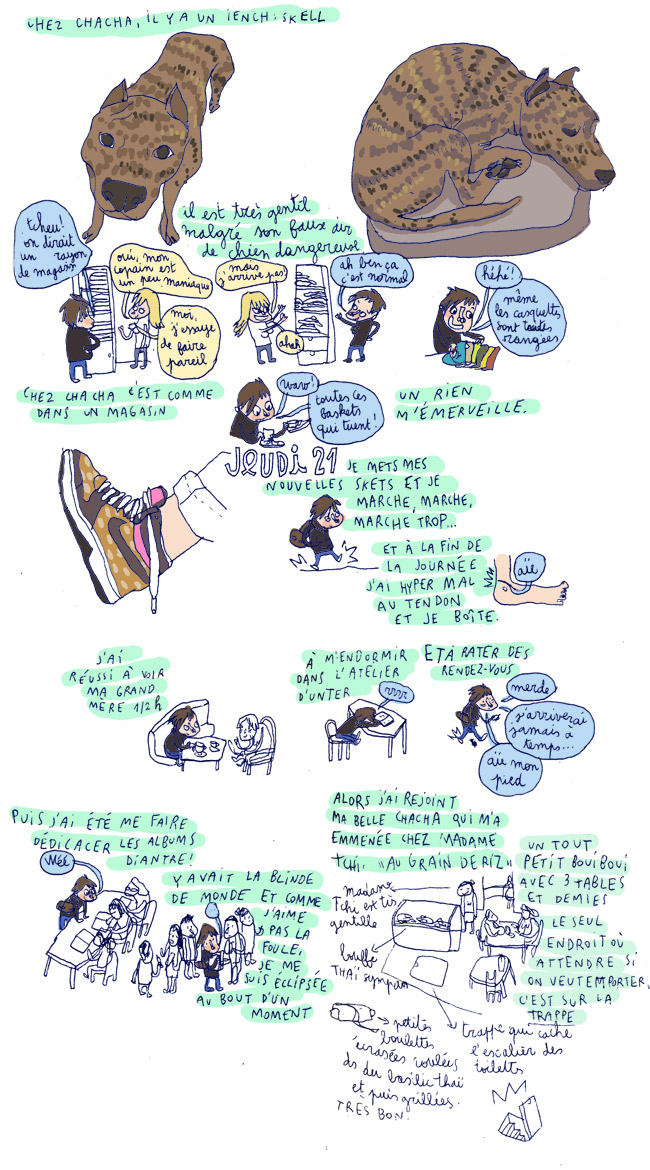 CHEZ CHACHA, IL Y A UN IENCH: SKELL
il est très gentil
malgré son faux air
de chien dangereuse
tcheu!
on dirait
un rayon
de magasin
oui, mon
copain est
un peu maniaque
moi,
j'essaye
de faire
pareil
mais
j'arrive pas!
ahah
ah ben ça
c'est normal
héhé!
même
les casquettes
sont toutes
rangées
CHEZ CHACHA C'EST COMME
DANS UN MAGASIN
waw!
toutes ces
baskets
qui tuent!
UN RIEN
M'ÉMERVEILLE.
JEUDI 21
JE METS MES
NOUVELLES SKETS ET JE
MARCHE, MARCHE,
MARCHE TROP...
ET À LA FIN DE
LA JOURNÉE
J'AI HYPER MAL
AU TENDON
ET JE BOÎTE.
aïe
J'AI
RÉUSSI À VOIR
MA GRAND
MÈRE 1/2h
À M'ENDORMIR
DANS L'ATELIER
D'UNTER
rrrr
ET À RATER DES
RENDEZ-VOUS
merde
j'arriverai
jamais à
temps...
aïe mon
pied
PUIS J'AI ÉTÉ ME FAIRE
DÉDICACER LES ALBUMS
DIANTRE!
Y AVAIT LA BLINDE
DE MONDE ET COMME
J'AIME
PAS LA
FOULE,
JE ME
SUIS ÉCLIPSÉE
AU BOUT D'UN
MOMENT
ALORS J'AI REJOINT
MA BELLE CHACHA QUI M'A
EMMENÉE CHEZ MADAME
TCHI: "AU GRAIN DE RIZ"
UN TOUT
PETIT BOUIBOUI
AVEC 3 TABLES
ET DEMIES
LE SEUL
ENDROIT OÙ
ATTENDRE SI
ON VEUT EMPORTER,
C'EST SUR LA
TRAPPE
madame
Tchi est trs
gentille
bouffe
THAÏ sympam
trappe qui cache
l'escalier des
toilettes
petites
boulettes
écrasées roulées
ds du basilic thaï
et puis grillées.
TRÈS BON.